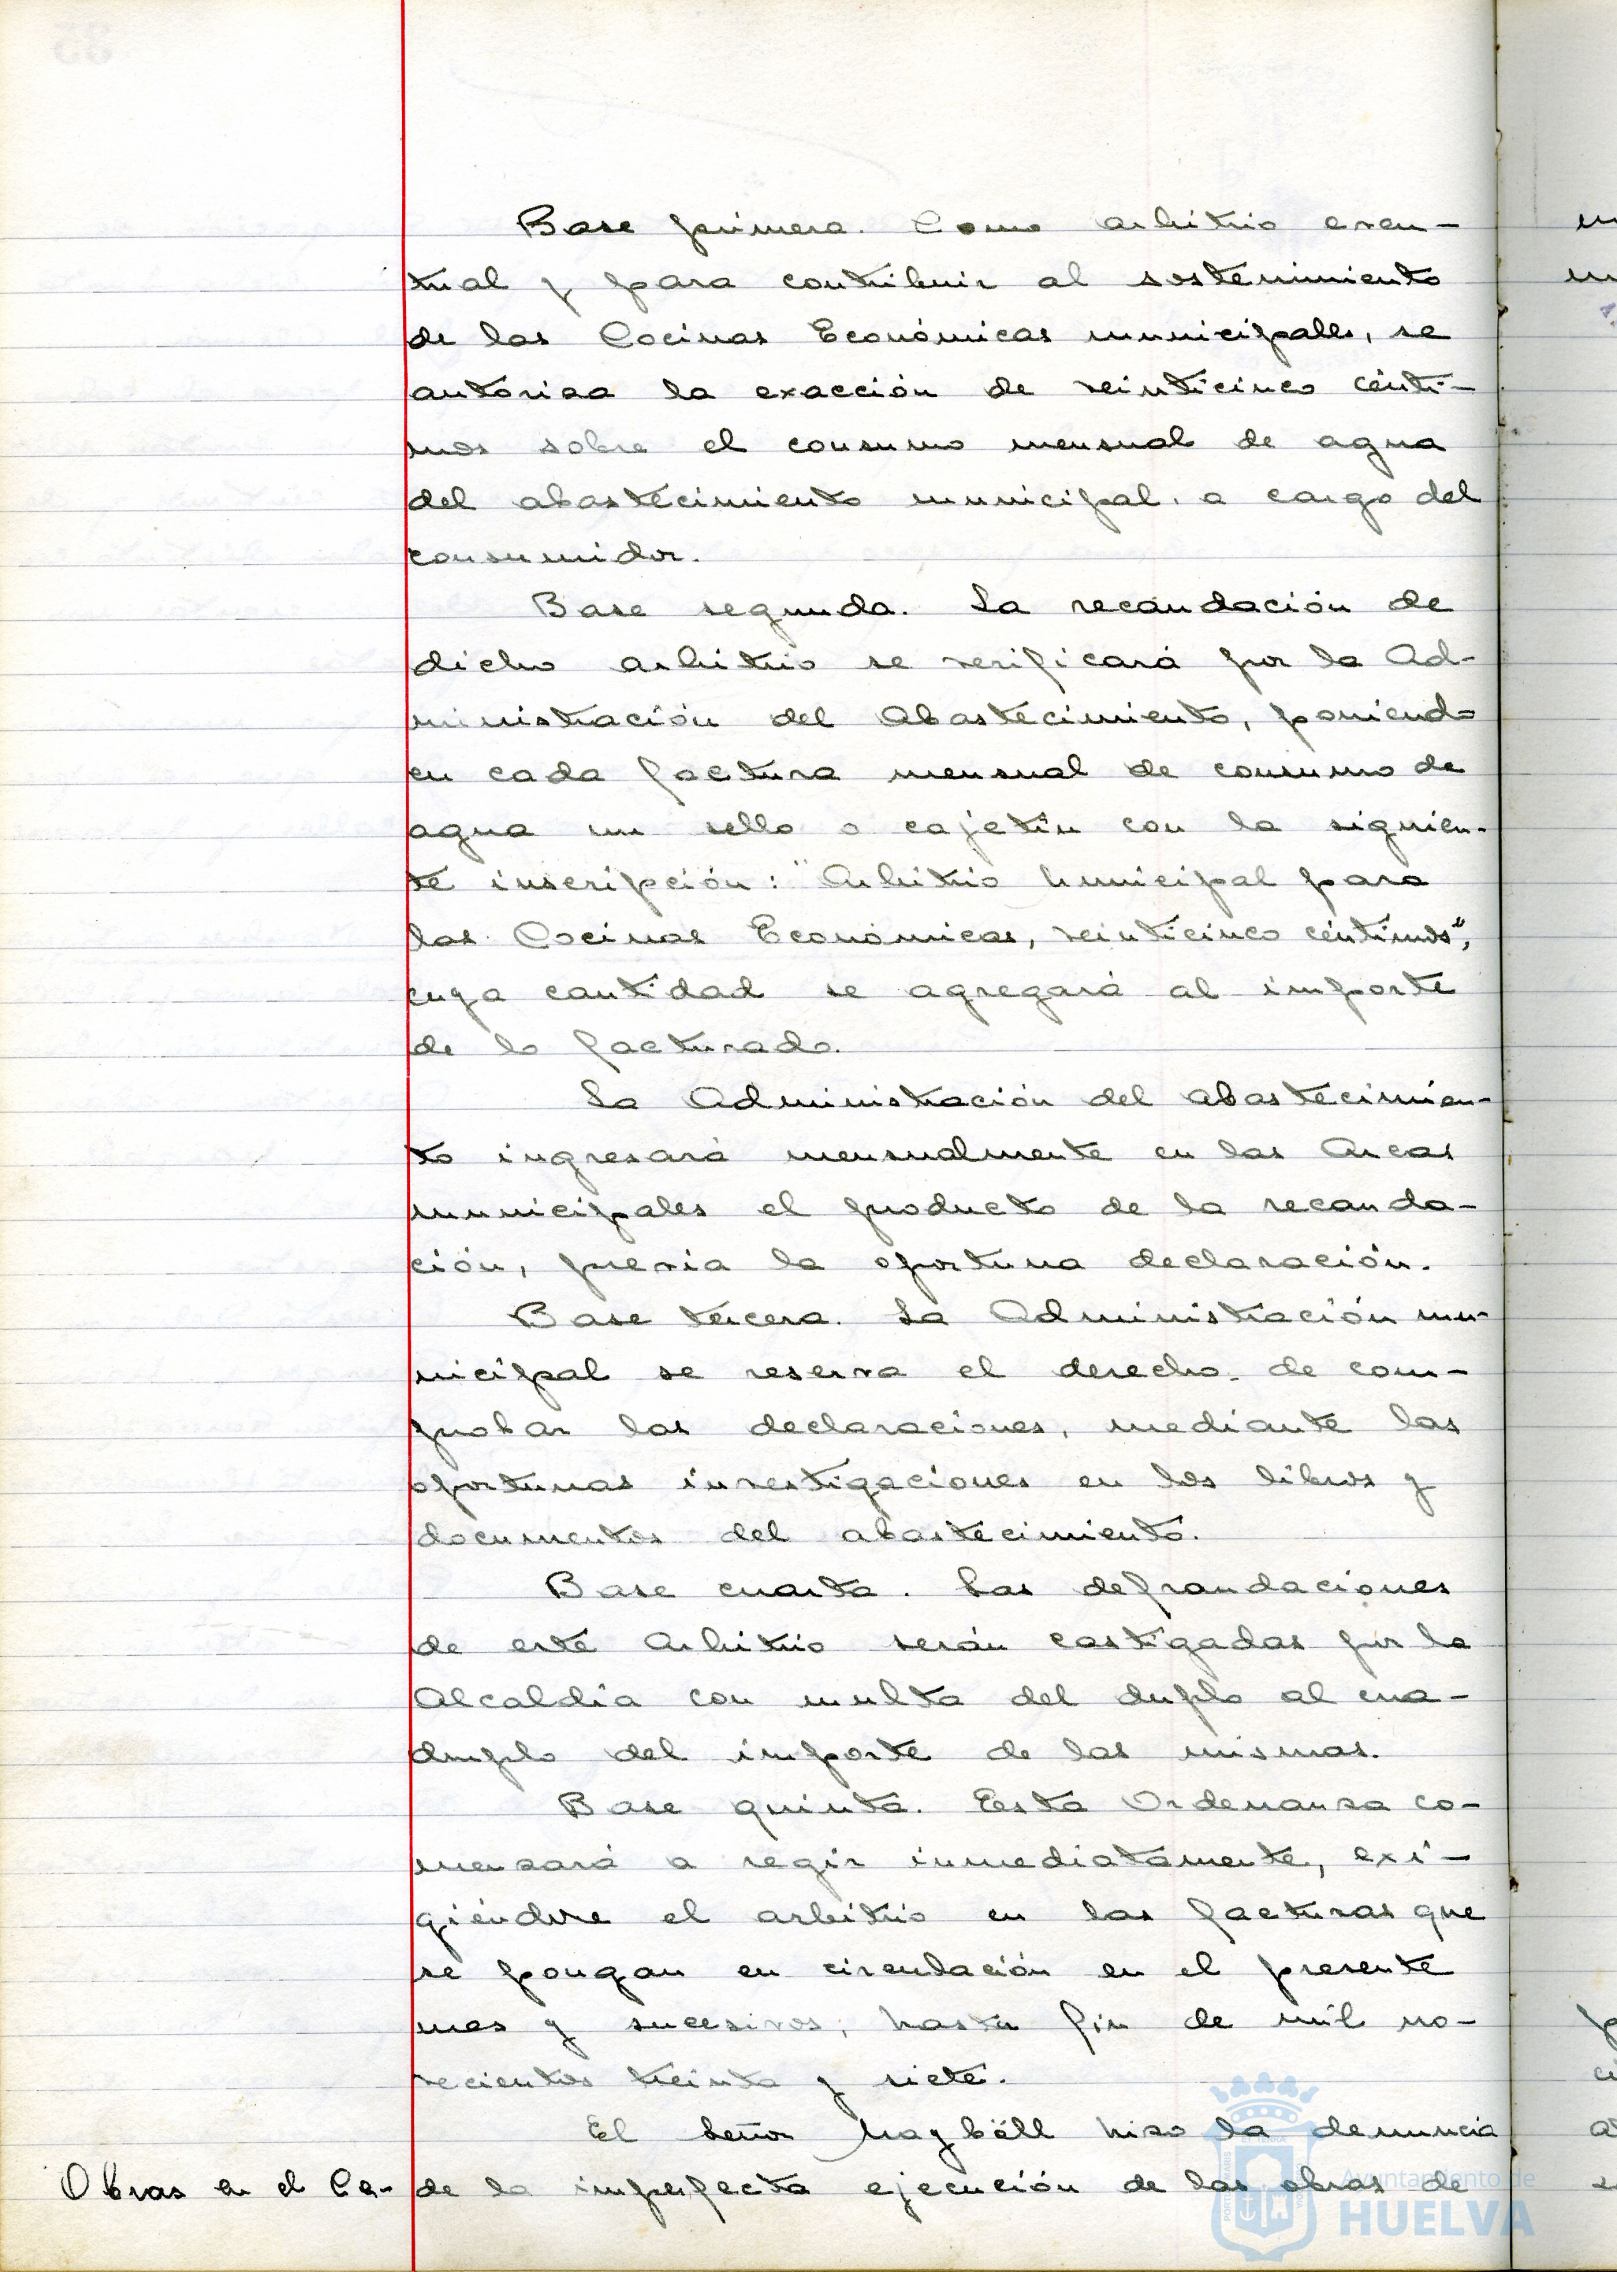 Base primera. Como arbitrio even-
tual y para contribuir al sostenimiento
de las Cocinas Económicas municipales, se
autoriza la exacción de veinticinco cénti-
mos sobre el consumo mensual de agua
del abastecimiento municipal, a cargo del
consumidor.
Base segunda. La recaudación de
dicho arbitrio se verificará por la Ad-
ministración del Abastecimiento, poniendo
en cada factura mensual de consumo de
agua un sello o cajetín con la siguien-
te inscripción: "Arbitrio Municipal para
las Cocinas Económicas, veinticinco céntimos",
cuya cantidad se agregará al importe
de lo facturado.
La Administración del abastecimien-
to ingresará mensualmente en las Arcas
municipales el producto de la recauda-
ción, previa la oportuna declaración.
Base tercera. La Administración mu-
nicipal se reserva el derecho de com-
probar las declaraciones, mediante las
oportunas investigaciones en los libros y
documentos del abastecimiento.
Base cuarta. Las defraudaciones
de este Arbitrio serán castigadas por la
Alcaldía con multa del duplo al cua-
druplo del importe de las mismas.
Base quinta. Esta Ordenanza co-
menzará a regir inmediatamente, exi-
giéndose el arbitrio en las facturas que
se pongan en circulación en el presente
mes y sucesivos, hasta fin de mil no-
vecientos treinta y siete.
El Señor hizo la denuncia
Obras en el Ce- de la imperfecta ejecución de las obras de
Ayuntamiento de
HUELVA